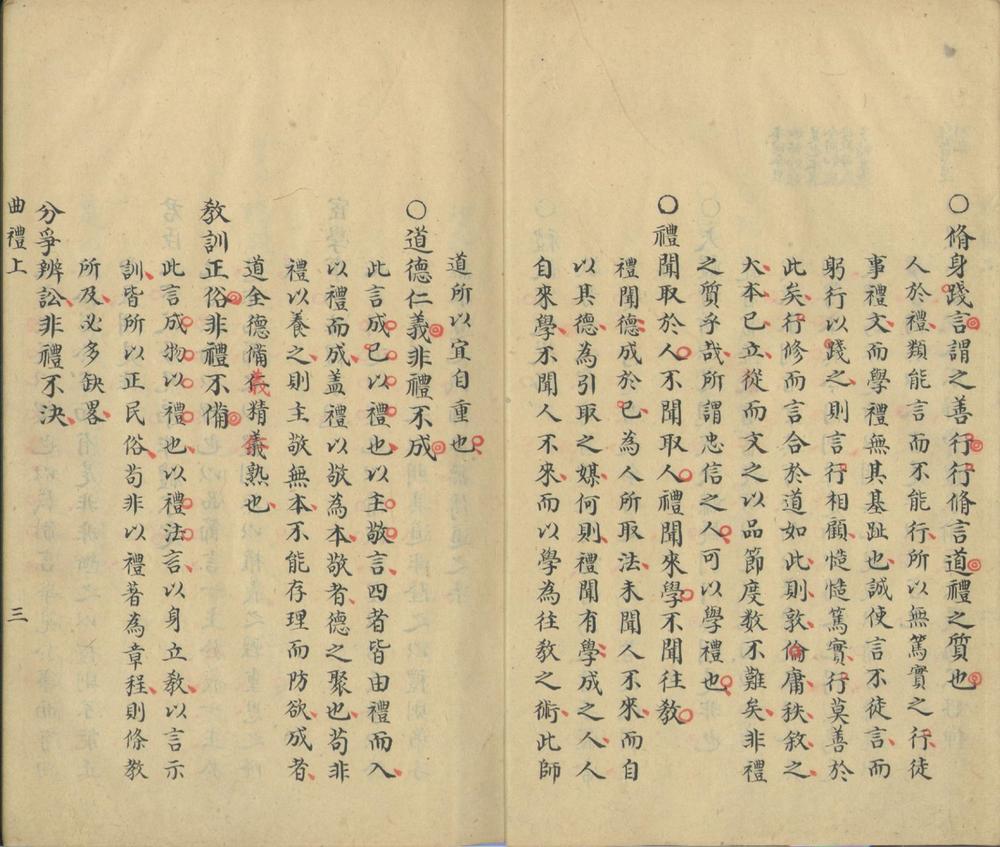 ○脩身踐言謂之善行行脩言道禮之質也
人於禮類能言而不能行所以無篤實之行徒
事禮文而學禮無其基趾也誠使言不徒言而
躬行以踐之則言行相顧慥慥篤實行莫善於
此矣行修而言合於道如此則敦倫庸秩敘之
大本已立從而文之以品節度数不難矣非禮
之質乎哉所謂忠信之人可以學禮也
○禮聞取於人不聞取人禮聞來學不聞往教
禮聞德成於已為人所取法未聞人不來而自
以其德為引取之媒何則禮聞有學成之人人
自來學不聞人不來而以學為往教之術此師
道所以宜自重也
○道德仁義非禮不成
此言成已以禮也以主敬言四者皆由禮而入
以禮而成盖禮以敬為本敬者德之聚也苟非
禮以養之則主敬無本不能存理而防欲成者
道全德備仁義精義熟也
教訓正俗非禮不備
此言成物以禮也以禮法言以身立教以言示
訓皆所以正民俗苟非以禮著為章程則條教
所及必多缺畧
分爭辨訟非禮不決
曲禮上
三